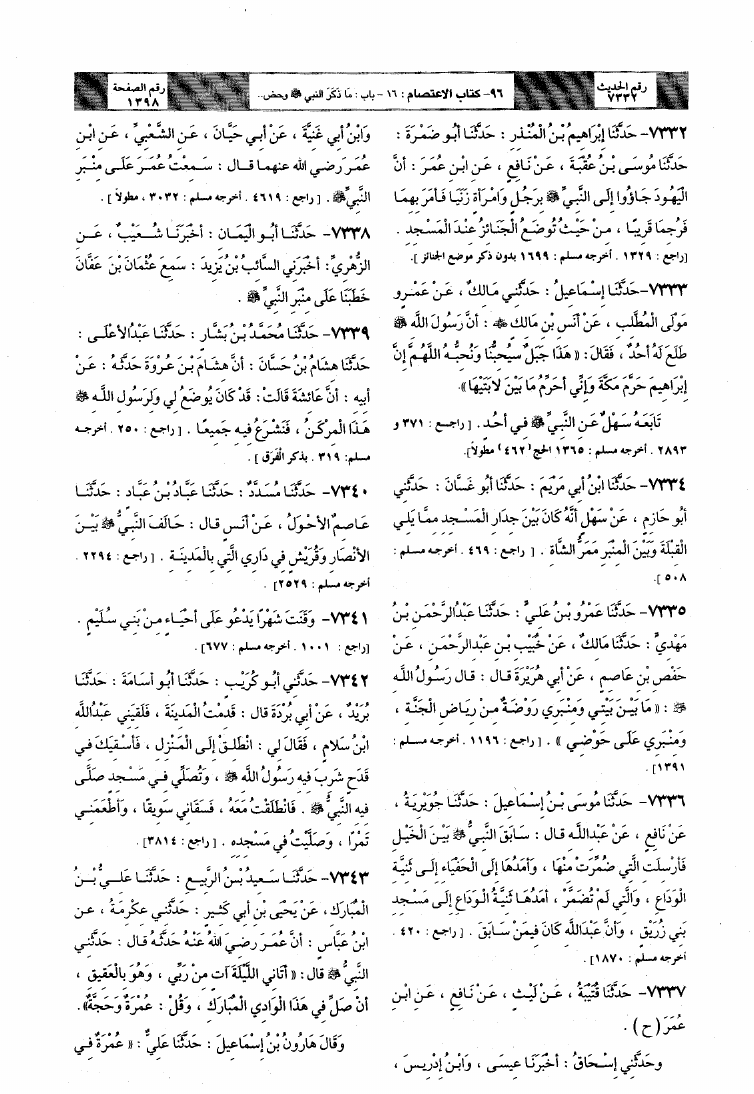 رقم الحديث
٧٣٣٢
٩٦- كتاب الاعتصام : ١٦ - باب : مَا ذَكَرَ النبي ﷺ وحض..
رقم الصفحة
١٣٩٨
٧٣٣٢- حَدَّثَنَا إِبْرَاهِيمُ بْنُ الْمُنْذِرِ : حَدَّثَنَا أَبُو ضَمْرَةَ :
حَدَّثَنَا مُوسَى بْنُ عُقْبَةَ ، عَنْ نَافِعٍ ، عَنِ ابْنِ عُمَرَ : أَنَّ
الْيَهُودَ جَاؤُوا إِلَى النَّبِيِّ ﷺ بِرَجُلٍ وَامْرَأَةٍ زَنَيَا فَأَمَرَ بِهِمَا
فَرُجِمَا قَرِيبًا ، مِنْ حَيْثُ تُوضَعُ الْجَنَائِزُ عِنْدَ الْمَسْجِدِ .
[راجع : ١٣٢٩ . أخرجه مسلم : ١٦٩٩ بدون ذكر موضع الجنائز ].
٧٣٣٣- حَدَّثَنَا إِسْمَاعِيلُ : حَدَّثَنِي مَالِكٌ ، عَنْ عَمْرٍو
مَوْلَى الْمُطَّلِبِ ، عَنْ أَنَسِ بْنِ مَالِكٍ ﷺ : أَنَّ رَسُولَ اللَّهِ ﷺ
طَلَعَ لَهُ أُحُدٌ ، فَقَالَ: « هَذَا جَبَلٌ يُحِبُّنَا وَنُحِبُّهُ اللَّهُمَّ إِنَّ
إِبْرَاهِيمَ حَرَّمَ مَكَّةَ وَإِنِّي أُحَرِّمُ مَا بَيْنَ لابَتَيْهَا».
تَابَعَهُ سَهْلٌ عَنِ النَّبِيِّ ﷺ فِي أُحُدٍ . [راجع : ٣٧١ و
٢٨٩٣ . أخرجه مسلم : ١٣٦٥ الحج (٤٦٢) مطولاً].
٧٣٣٤- حَدَّثَنَا ابْنُ أَبِي مَرْيَمَ : حَدَّثَنَا أَبُو غَسَّانَ : حَدَّثَنِي
أَبُو حَازِمٍ ، عَنْ سَهْلٍ أَنَّهُ كَانَ بَيْنَ جِدَارِ الْمَسْجِدِ مِمَّا يَلِي
الْقِبْلَةَ وَبَيْنَ الْمِنْبَرِ مَمَرُّ الشَّاةِ . [ راجع : ٤٦٩ . أخرجه مسلم :
٥٠٨ ].
٧٣٣٥- حَدَّثَنَا عَمْرُو بْنُ عَلِيٍّ : حَدَّثَنَا عَبْدُالرَّحْمَنِ بْنُ
مَهْدِيٍّ : حَدَّثَنَا مَالِكٌ ، عَنْ خُبَيْبِ بْنِ عَبْدِالرَّحْمَنِ ، عَنْ
حَفْصِ بْنِ عَاصِمٍ ، عَنْ أَبِي هُرَيْرَةَ قَالَ : قَالَ رَسُولُ اللَّهِ
ﷺ : « مَا بَيْنَ بَيْتِي وَمِنْبَرِي رَوْضَةٌ مِنْ رِيَاضِ الْجَنَّةِ ،
وَمِنْبَرِي عَلَى حَوْضِي » . [ راجع : ١١٩٦ . أخرجه مسلم :
١٣٩١].
٧٣٣٦- حَدَّثَنَا مُوسَى بْنُ إِسْمَاعِيلَ : حَدَّثَنَا جُوَيْرِيَةُ ،
عَنْ نَافِعٍ ، عَنْ عَبْدِاللَّهِ قَالَ : سَابَقَ النَّبِيُّ ﷺ بَيْنَ الْخَيْلِ
فَأُرْسِلَتِ الَّتِي ضُمِّرَتْ مِنْهَا ، وَأَمَدُهَا إِلَى الْحَفْيَاءِ إِلَى ثَنِيَّةِ
الْوَدَاعِ ، وَالَّتِي لَمْ تُضَمَّرْ ، أَمَدُهَا ثَنِيَّةُ الْوَدَاعِ إِلَى مَسْجِدِ
بَنِي زُرَيْقٍ ، وَأَنَّ عَبْدَاللَّهِ كَانَ فِيمَنْ سَابَقَ . [ راجع : ٤٢٠ .
أخرجه مسلم : ١٨٧٠].
٧٣٣٧- حَدَّثَنَا قُتَيْبَةُ ، عَنْ لَيْثٍ ، عَنْ نَافِعٍ ، عَنِ ابْنِ
عُمَرَ ( ح ) .
وحَدَّثَنِي إِسْحَاقُ : أَخْبَرَنَا عِيسَى ، وَابْنُ إِدْرِيسَ ،
وَابْنُ أَبِي غَنِيَّةَ ، عَنْ أَبِي حَيَّانَ ، عَنِ الشَّعْبِيِّ ، عَنِ ابْنِ
عُمَرَ رَضِيَ اللَّه عنهما قَالَ : سَمِعْتُ عُمَرَ عَلَى مِنْبَرِ
النَّبِيِّ ﷺ . [ راجع : ٤٦١٩ . أخرجه مسلم : ٣٠٣٢ ، مطولاً ] .
٧٣٣٨- حَدَّثَنَا أَبُو الْيَمَانِ : أَخْبَرَنَا شُعَيْبٌ ، عَنِ
الزُّهْرِيِّ: أَخْبَرَنِي السَّائِبُ بْنُ يَزِيدَ : سَمِعَ عُثْمَانَ بْنَ عَفَّانَ
خَطَبَنَا عَلَى مِنْبَرِ النَّبِيِّ ﷺ .
٧٣٣٩- حَدَّثَنَا مُحَمَّدُ بْنُ بَشَّارٍ : حَدَّثَنَا عَبْدُالأَعْلَى :
حَدَّثَنَا هِشَامُ بْنُ حَسَّانَ : أَنَّ هِشَامَ بْنَ عُرْوَةَ حَدَّثَهُ : عَنْ
أَبِيهِ : أَنَّ عَائِشَةَ قَالَتْ: قَدْ كَانَ يُوضَعُ لِي وَلِرَسُولِ اللَّهِ ﷺ
هَذَا الْمِرْكَنُ ، فَنَشْرَعُ فِيهِ جَمِيعًا . [ راجع : ٢٥٠ . أخرجه
مسلم: ٣١٩ . بذكر الفَرَق ] .
٧٣٤٠- حَدَّثَنَا مُسَدَّدٌ : حَدَّثَنَا عَبَّادُ بْنُ عَبَّادٍ : حَدَّثَنَا
عَاصِمٌ الأَحْوَلُ ، عَنْ أَنَسٍ قَالَ : حَالَفَ النَّبِيُّ ﷺ بَيْنَ
الأَنْصَارِ وَقُرَيْشٍ فِي دَارِي الَّتِي بِالْمَدِينَةِ . [ راجع : ٢٢٩٤ .
أخرجه مسلم : ٢٥٢٩].
٧٣٤١- وَقَنَتَ شَهْرًا يَدْعُو عَلَى أَحْيَاءٍ مِنْ بَنِي سُلَيْمٍ .
[راجع : ١٠٠١ . أخرجه مسلم : ٦٧٧].
٧٣٤٢- حَدَّثَنِي أَبُو كُرَيْبٍ : حَدَّثَنَا أَبُو أُسَامَةَ : حَدَّثَنَا
بُرَيْدٌ ، عَنْ أَبِي بُرْدَةَ قَالَ : قَدِمْتُ الْمَدِينَةَ ، فَلَقِيَنِي عَبْدُاللَّهِ
ابْنُ سَلَامٍ ، فَقَالَ لِي : انْطَلِقْ إِلَى الْمَنْزِلِ ، فَأَسْقِيَكَ فِي
قَدَحٍ شَرِبَ فِيهِ رَسُولُ اللَّهِ ﷺ ، وَتُصَلِّي فِي مَسْجِدٍ صَلَّى
فِيهِ النَّبِيُّ ﷺ . فَانْطَلَقْتُ مَعَهُ ، فَسَقَانِي سَوِيقًا ، وَأَطْعَمَنِي
تَمْرًا ، وَصَلَّيْتُ فِي مَسْجِدِهِ . [راجع : ٣٨١٤].
٧٣٤٣- حَدَّثَنَا سَعِيدُ بْنُ الرَّبِيعِ : حَدَّثَنَا عَلِيُّ بْنُ
الْمُبَارَكِ، عَنْ يَحْيَى بْنِ أَبِي كَثِيرٍ : حَدَّثَنِي عِكْرِمَةُ ، عَنِ
ابْنِ عَبَّاسٍ : أَنَّ عُمَرَ رَضِيَ اللَّهُ عَنْهُ حَدَّثَهُ قَالَ : حَدَّثَنِي
النَّبِيُّ ﷺ قَالَ: « أَتَانِي اللَّيْلَةَ آتٍ مِنْ رَبِّي ، وَهُوَ بِالْعَقِيقِ ،
أَنْ صَلِّ فِي هَذَا الْوَادِي الْمُبَارَكِ ، وَقُلْ : عُمْرَةٌ وَحَجَّةٌ».
وَقَالَ هَارُونُ بْنُ إِسْمَاعِيلَ : حَدَّثَنَا عَلِيٌّ : « عُمْرَةٌ فِي